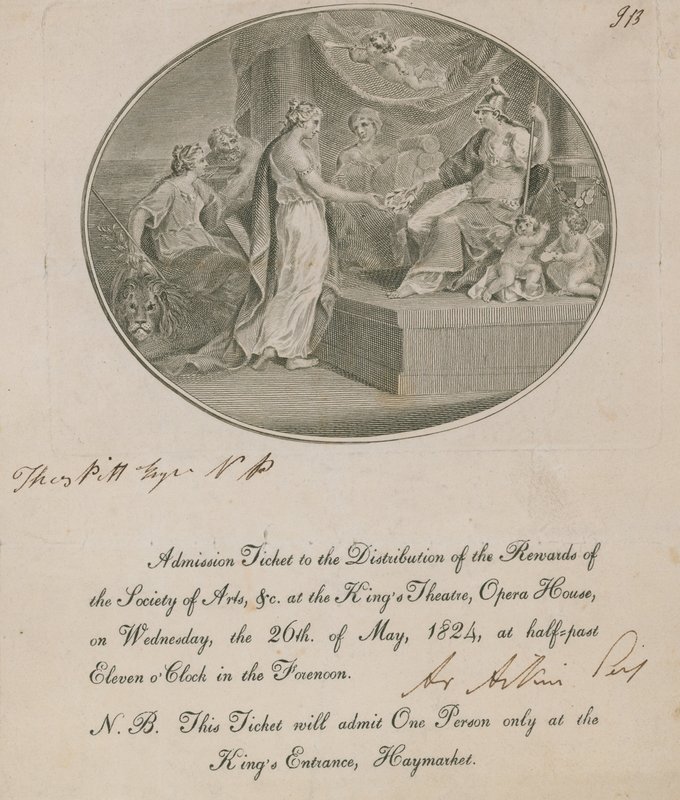 913
Thos Pitt Esqre V P
Admission Ticket to the Distribution of the Rewards of
the Society of Arts, &c. at the King's Theatre, Opera House,
on Wednesday, the 26th. of May, 1824, at half=past
Eleven o'Clock in the Forenoon.
Ar Aikin
N. B. This Ticket will admit One Person only at the
King's Entrance, Haymarket.